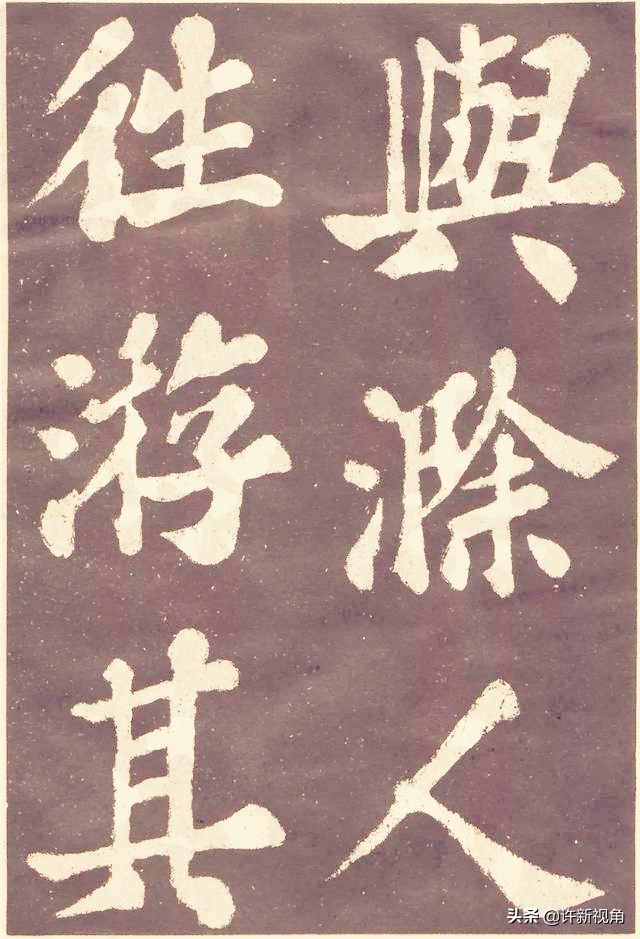 與滁人
往游其
头条 @许新视角